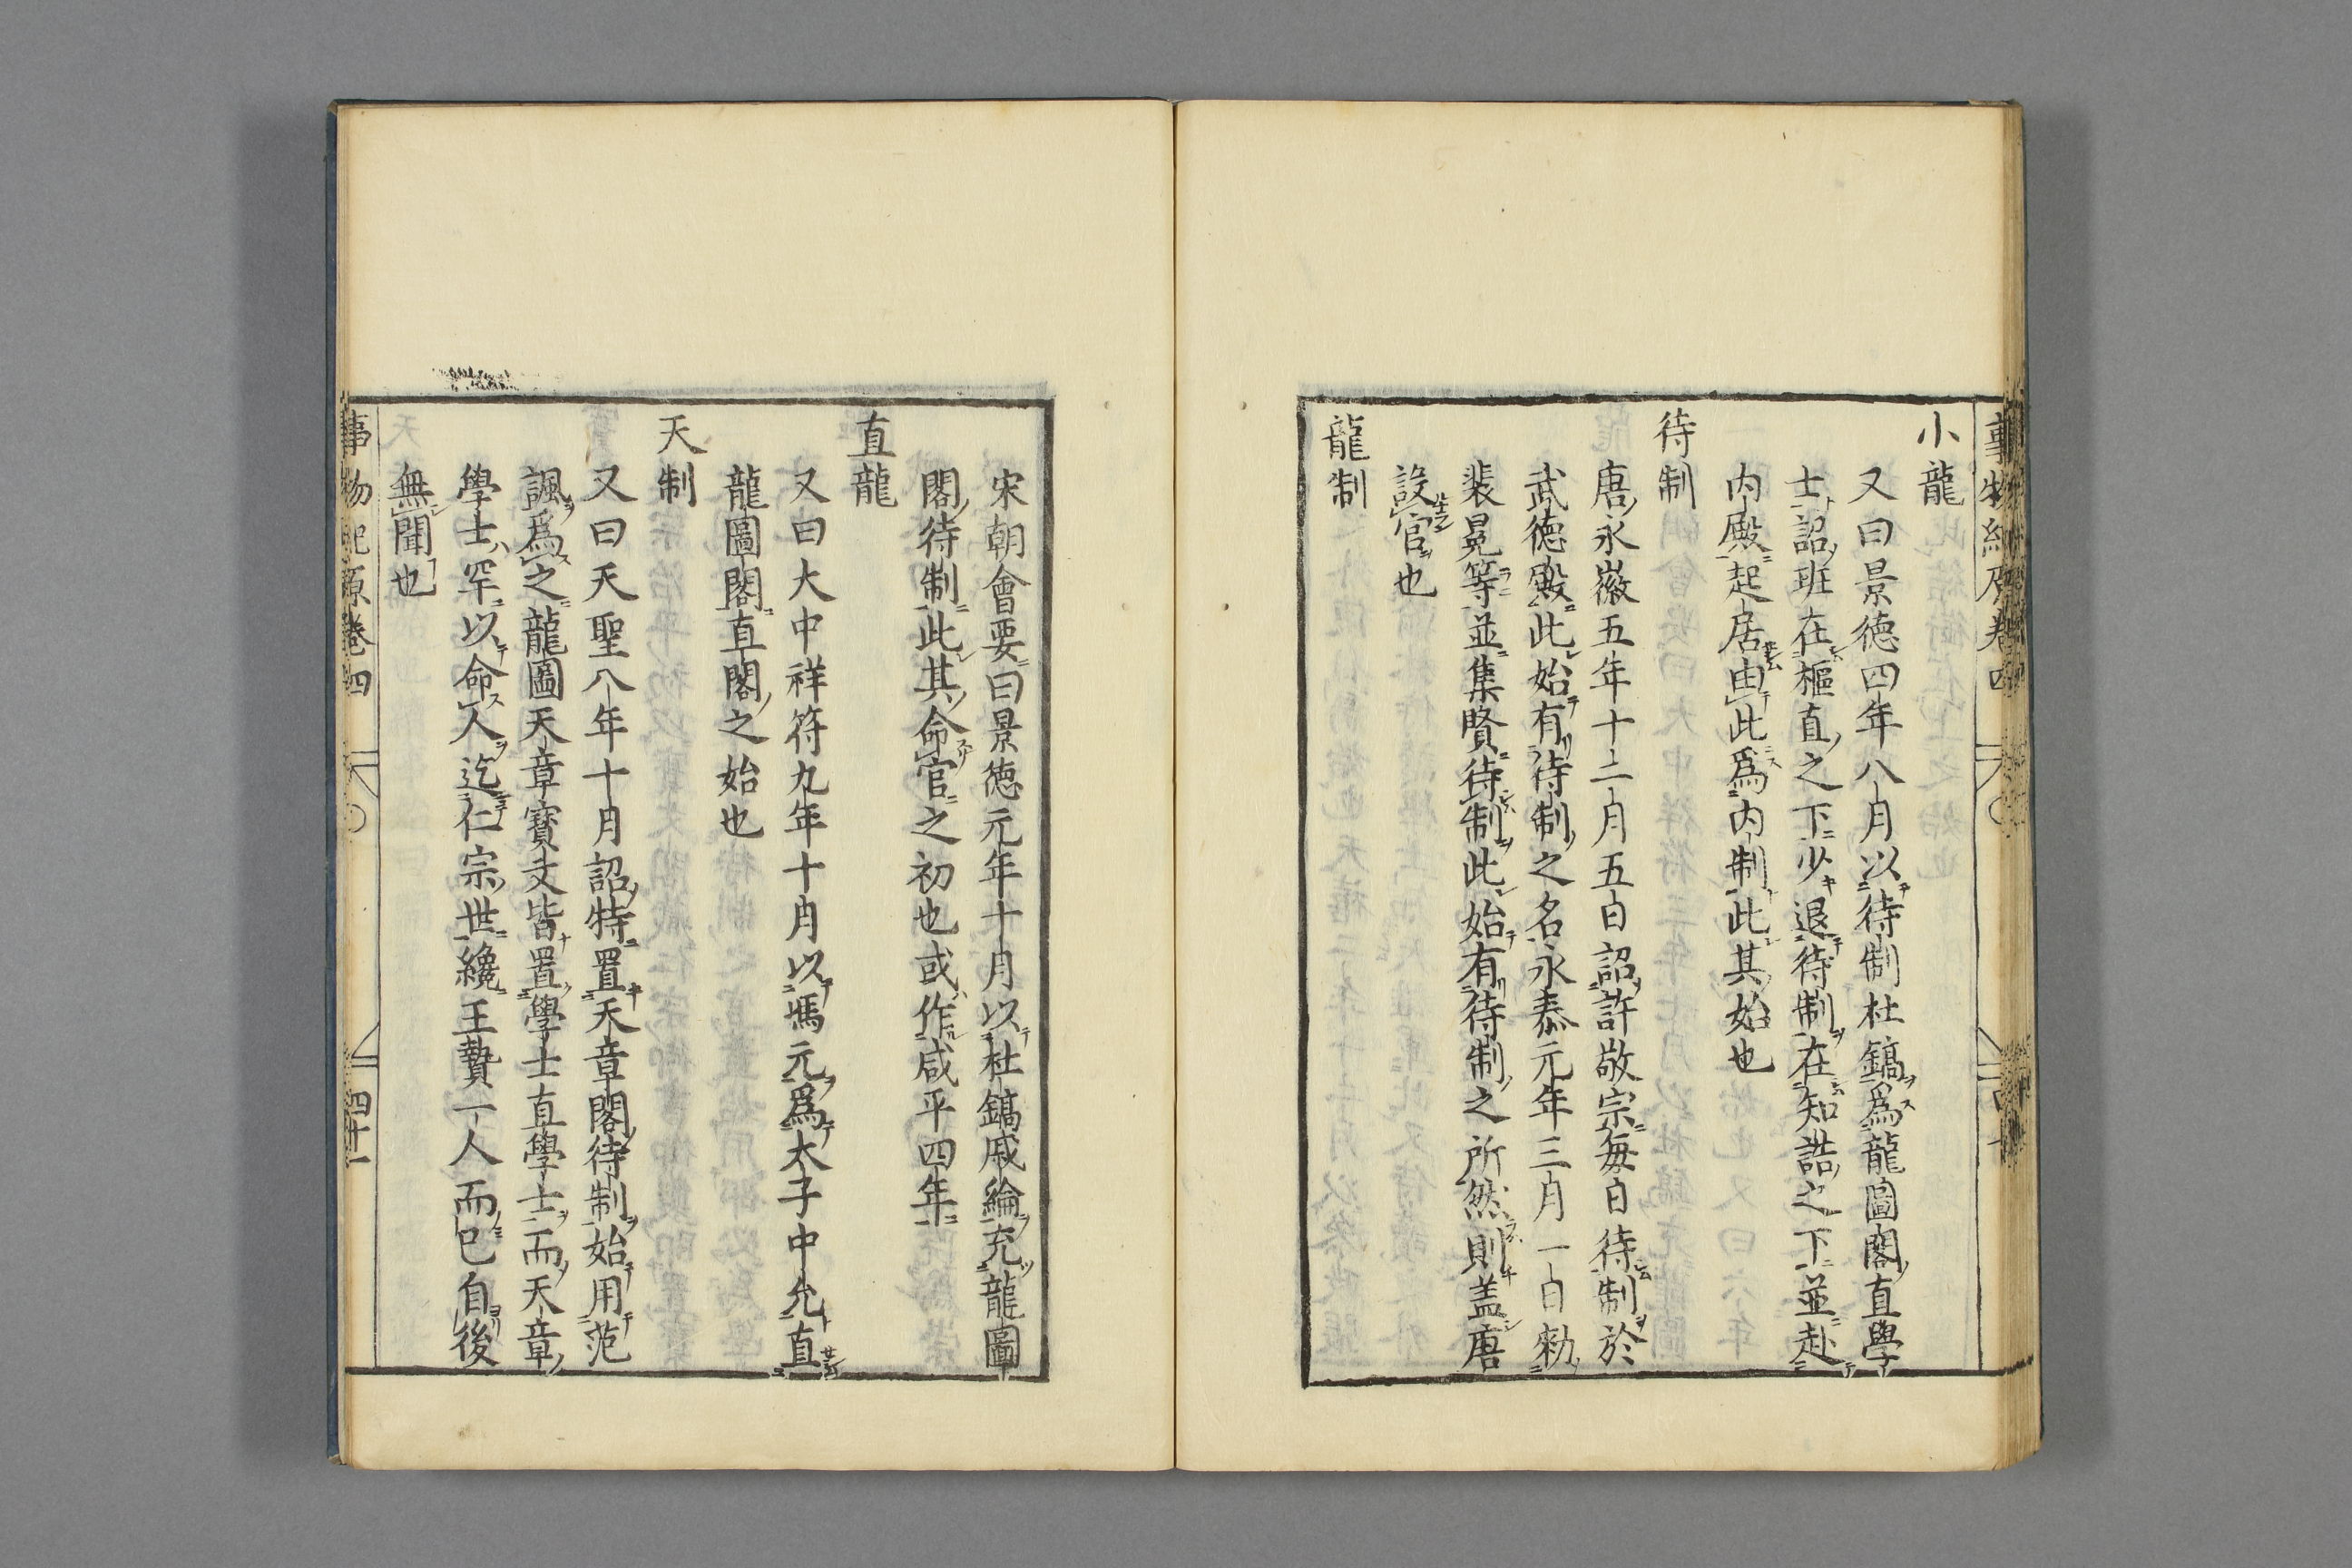 事物紀原卷四
小龍
又曰景德四年八月以待制杜鎬爲龍圖閣直學
士詔班在樞直之下少退待制在知誥之下並赴
内殿起居由此爲内制此其始也
待制
唐永徽五年十二月五日詔許敬宗每日待制於
武德殿此始有待制之名永泰元年三月一日勑
裴冕等並集賢待制此始有待制之所然則盖唐
設官也
龍制
宋朝會要曰景德元年十月以杜鎬戚綸充龍圖
閣待制此其命官之初也或作咸平四年
直龍
又曰大中祥符九年十月以馮元爲太子中允直
龍圖閣直閣之始也
天制
又曰天聖八年十月詔特置天章閣待制始用范
諷爲之龍圖天章寶文皆置學士直學士而天章
學士罕以命人迄仁宗世纔王贄一人而已自後
無聞也
事物紀原卷四
四十一